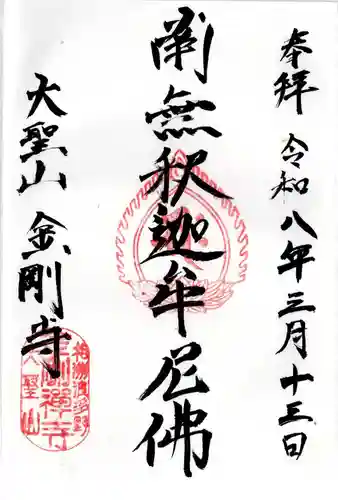 奉拝 令和八年三月十三日
南無釈迦牟尼佛
大聖山 金剛寺
相州波多野
金剛禅寺
大聖山